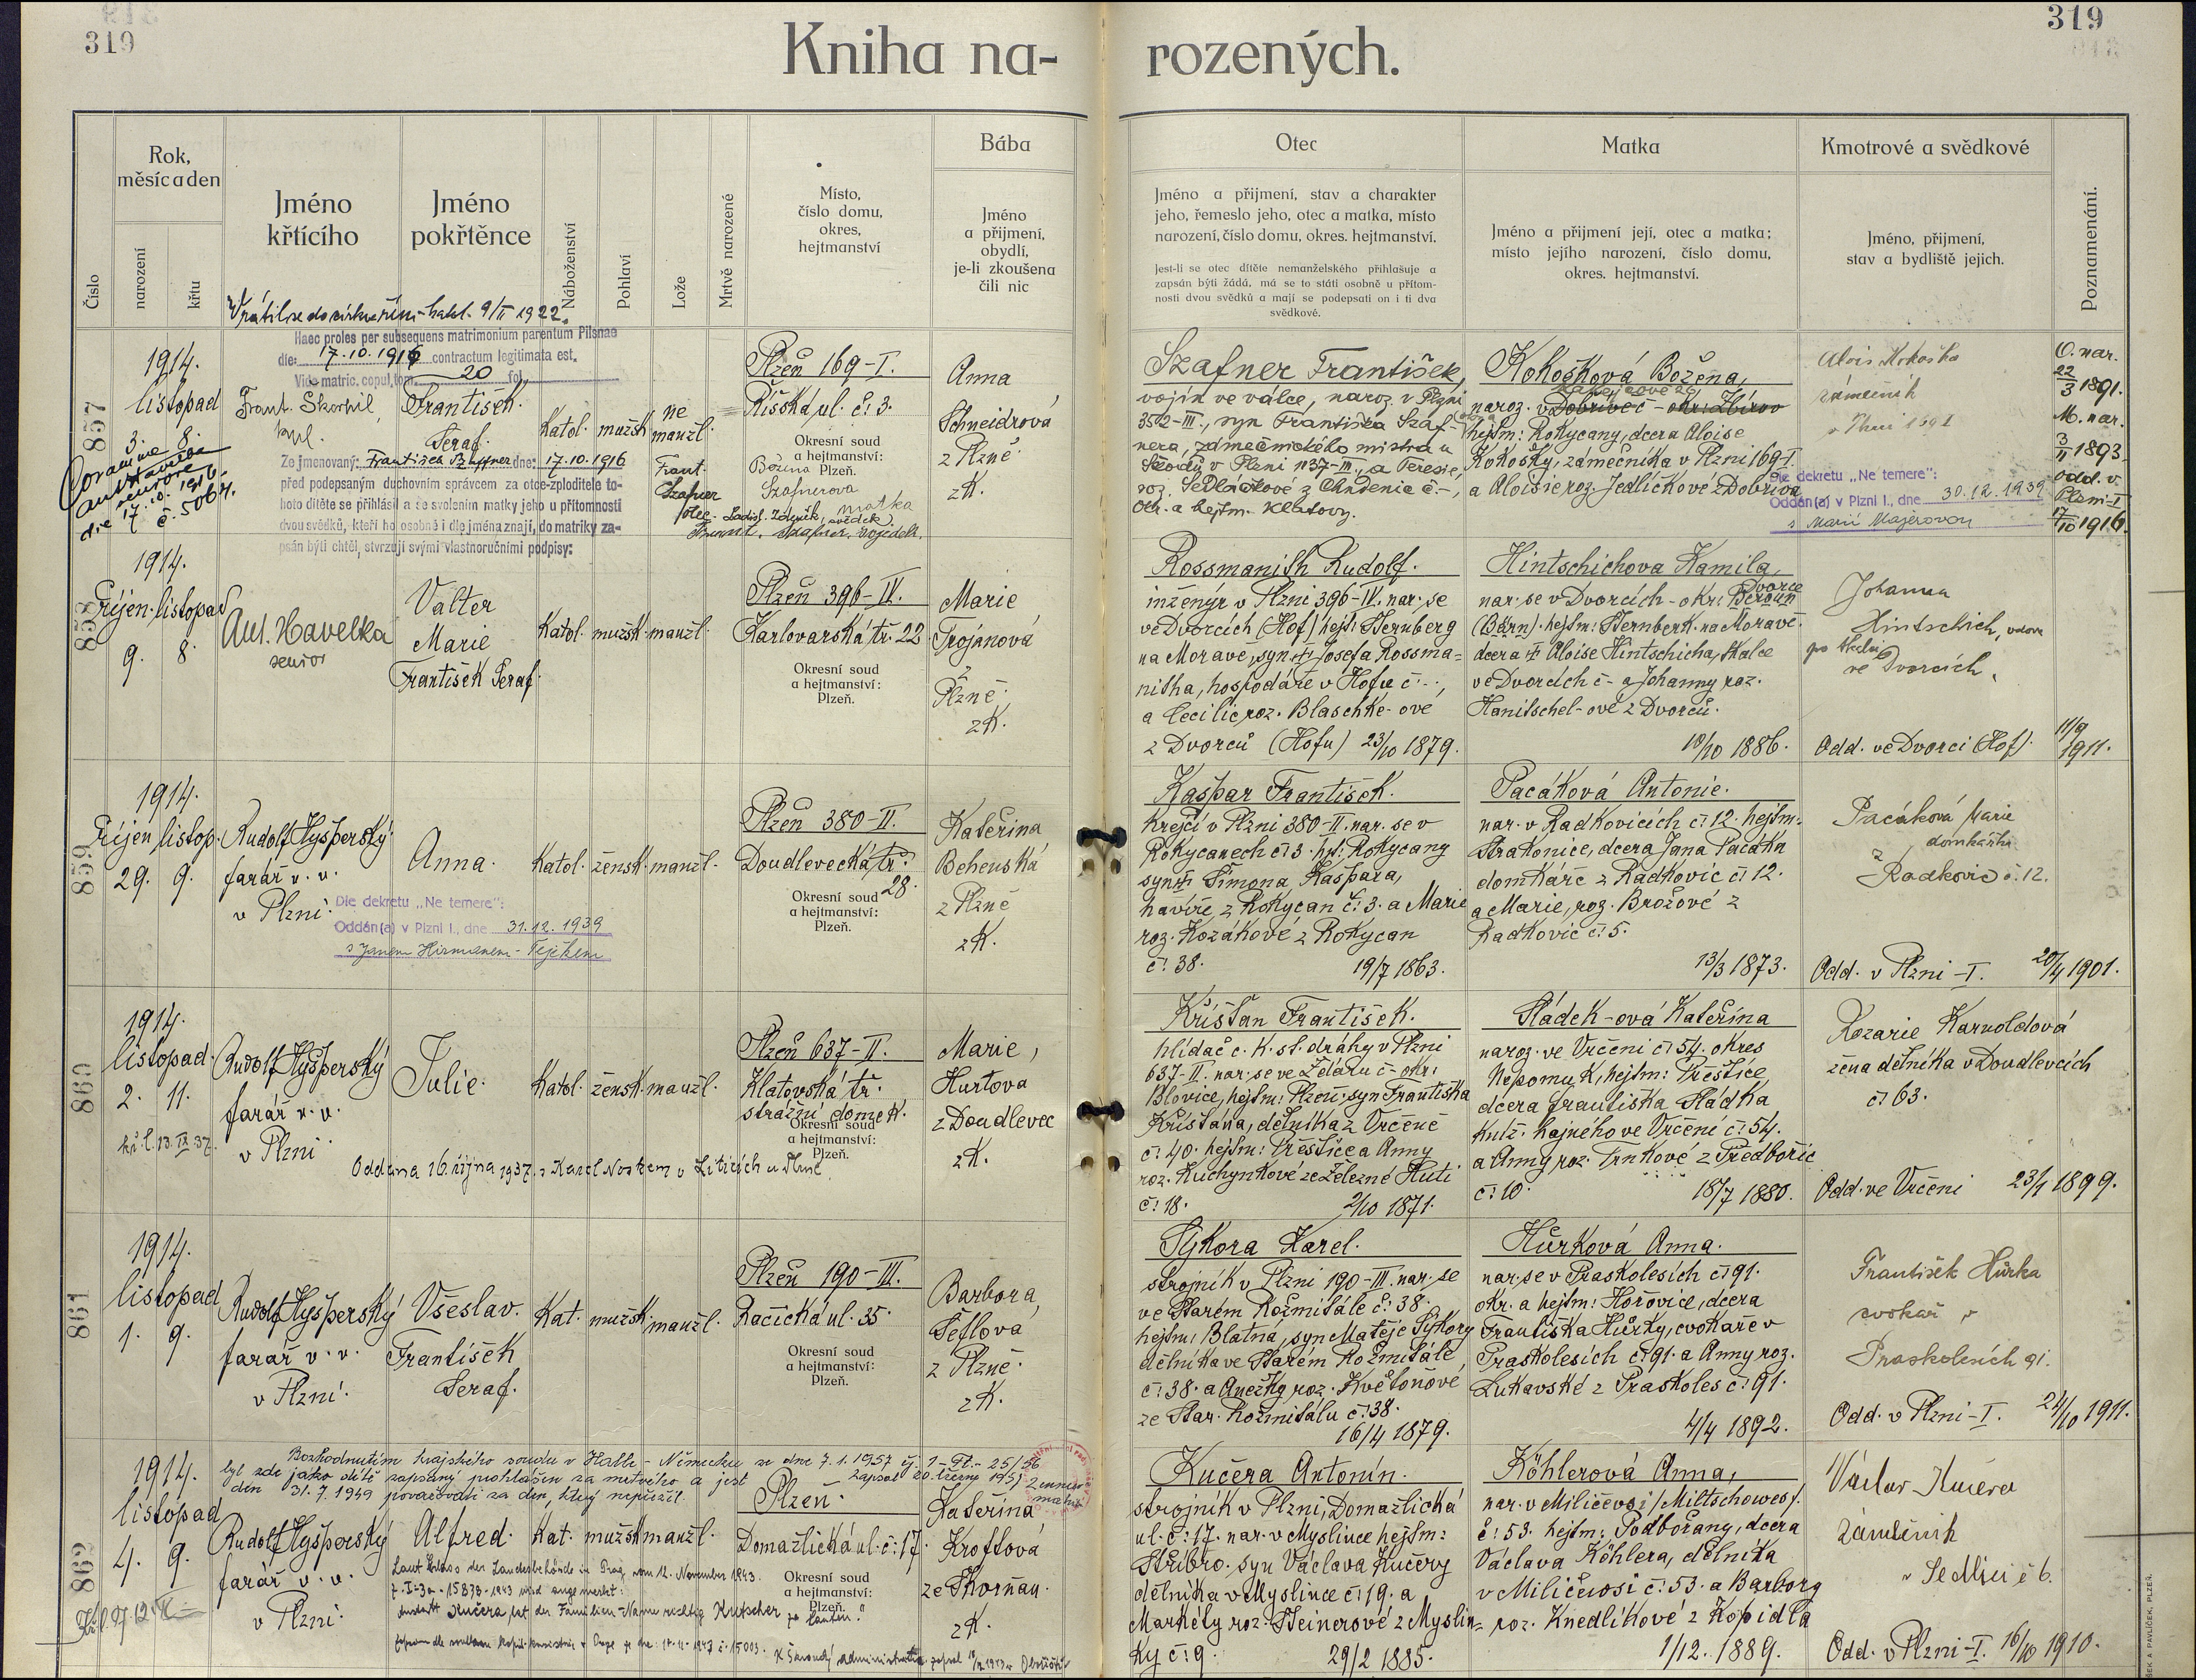 319
319
Kniha na-
rozených.
Číslo
Rok,
měsíc a den
narození
křtu
Jméno
křtícího
Jméno
pokřtěnce
Náboženství
Pohlaví
Lože
Mrtvě narozené
Místo,
číslo domu,
okres,
hejtmanství
Bába
Jméno
a přijmení,
obydlí,
je-li zkoušena
čili nic
Otec
Jméno a přijmení, stav a charakter
jeho, řemeslo jeho, otec a matka, místo
narození, číslo domu, okres. hejtmanství.
Jest-li se otec dítěte nemanželského přihlašuje a
zapsán býti žádá, má se to státi osobně u přítom-
nosti dvou svědků a mají se podepsati on i ti dva
svědkové.
Matka
Jméno a přijmení její, otec a matka;
místo jejího narození, číslo domu,
okres. hejtmanství.
Kmotrové a svědkové
Jméno, přijmení,
stav a bydliště jejich.
Poznamenání.
Vrátil se do církve řím-katol. 9/II 1922.
857
1914.
listopad
3. 8.
Coram me
Ant. Havelka
seniore
die 17.10. 1916.
č. 5064.
Haec proles per subsequens matrimonium parentum Pilsnae
die: 17.10.1916 contractum legitimata est.
Vide matric. copul. tom. 20 fol.
Frant. Skorpil
kpl.
František
Seraf.
Katol.
mužsk
ne
manžl.
Ze jmenovaný: František Szaffner dne: 17.10.1916
před podepsaným duchovním správcem za otce-zploditele to-
hoto dítěte se přihlásil a se svolením matky jeho u přítomnosti
dvou svědků, kteří ho osobně i dle jména znají, do matriky za-
psán býti chtěl, stvrzují svými vlastnoručními podpisy:
Frant.
Szafner
otec.
Ladisl. Zdeněk, svědek.
Plzeň 169-I.
Říšská ul. č: 3.
Okresní soud
a hejtmanství:
Plzeň.
Božena
Szafnerova
matka
Anna
Schneidrová
z Plzně
zK.
Szafner František,
vojín ve válce, naroz. v Plzni
3502-III., syn Františka Szaf-
nera, zámečnického mistra u
Škodů v Plzni 1137-III., a Terezie,
roz. Sedláčkové z Chudenic č.-,
okr. a hejtm. Klatovy.
Kokošková Božena,
naroz. v Dobřívec - okr: Zbirov
hejtm: Rokycany, dcera Aloise
Kokošky, zámečníka v Plzni 169-I.
a Aloisie roz. Jedličkové z Dobříva
Alois Kokoška
zámečník
v Plzni 169 I
Dle dekretu „Ne temere":
Oddán(a) v Plzni I., dne 30.12.1939
s Marií Majerovou
O. nar.
22/3 1891.
M. nar.
3/11 1893.
odd. v
Plzni-I
17/10 1916.
858
1914.
říjen. listopad
9. 8.
Ant. Havelka
senior
Valter
Marie
František Seraf.
Katol.
mužsk.
manžl.
Plzeň 396-IV.
Karlovarská tř. 22
Okresní soud
a hejtmanství:
Plzeň.
Marie
Trojanová
z
Plzně.
zK.
Rossmanith Rudolf.
inženýr v Plzni 396-IV. nar. se
ve Dvorcích (Hof) hejt: Sternberg
na Moravě, syn Josefa Rossma-
nitha, hospodáře v Hofu č.-,
a Cecilie roz. Blaschke-ové
z Dvorců (Hofu) 23/10 1879.
Hintschichova Kamila,
nar. se v Dvorcích - okr: Beroun
Dvorce
(Bärn). hejtm: Sternberk. na Moravě.
dcera Aloise Hintschicha, tkalce
ve Dvorcích č- a Johanny roz.
Hanitschel-ové z Dvorců.
10/10 1886.
Johanna
Hintschich, vdova
ve Dvorcích.
Odd. ve Dvorci (Hof).
11/9
1911.
859
1914.
říjen listop.
29. 9.
Rudolf Hyšperský
farář v. v.
v Plzni.
Anna.
Katol.
žensk.
manžl.
Dle dekretu „Ne temere":
Oddán(a) v Plzni I., dne 31.12.1939
Plzeň 380-II.
Doudlevecká tř:
28.
Okresní soud
a hejtmanství:
Plzeň.
Kateřina
Behenská
z Plzně
zK.
Kašpar František.
krejčí v Plzni 380-II. nar. se v
Rokycanech č: 3. hjt: Rokycany
syn Šimona Kašpara,
havíře, z Rokycan č: 3. a Marie
roz. Kozákové z Rokycan
č: 38. 19/7 1863.
Pacáková Antonie.
nar. v Radkovicích č: 12. hejtm:
Strakonice, dcera Jana Pacáka
domkáře z Radkovic č: 12.
a Marie, roz. Brožové z
Radkovic č: 5.
13/3 1873.
Pacáková Marie
domkářka
z
Radkovic č. 12.
Odd. v Plzni-I. 20/4 1901.
860
1914.
listopad.
2. 11.
kř. l. 13. IX 37.
Rudolf Hyšperský
farář v. v.
v Plzni
Julie.
Katol.
žensk.
manžl.
Oddána 16. října 1937. s Karel Noskem v Liticích u Plzně
Plzeň 637-II.
Klatovská tř.
strážní domek.
Okresní soud
a hejtmanství:
Plzeň.
Marie,
Hurtova
z Doudlevec
zK.
Křišťan František.
hlídač c. k. st. dráhy v Plzni
637-II. nar. se ve Ždáru č- okr:
Blovice, hejtm: Plzeň. syn Františka
Křišťána, dělníka z Vrčeně
č: 40. hejtm: Přeštice a Anny
roz. Kuchynkové ze Železné Huti
č: 18. 2/10 1871.
Sládek-ová Kateřina
naroz. ve Vrčeni č: 54. okres
Nepomuk, hejtm: Přeštice
dcera Františka Sládka
kníž. hajného ve Vrčeni č: 54.
a Anny roz. Trnkové z Předbořic
č: 10. 18/7 1880.
Rozarie Karnoldová
žena dělníka v Doudlevcích
č: 63.
Odd. ve Vrčeni 23/1 1899.
861
1914.
listopad
1. 9.
Rudolf Hyšperský
farář v. v.
v Plzni.
Všeslav.
František
Seraf.
Kat.
mužsk.
manžl.
Plzeň 190-III.
Račická ul. 35.
Okresní soud
a hejtmanství:
Plzeň.
Barbora
Šeflová
z Plzně.
zK.
Sýkora Karel.
strojník v Plzni 190-III. nar. se
ve Starém Rožmitále č: 38.
hejtm: Blatná, syn Matěje Sýkory
dělníka ve Starém Rožmitále
č: 38. a Anežky roz. Květoňové
ze Star. Rožmitálu č: 38.
16/4 1879.
Hůrková Anna.
nar. se v Praskolesích č: 91.
okr. a hejtm: Hořovice, dcera
Františka Hůrky, cvokaře v
Praskolesích č: 91. a Anny roz.
Lukavské z Praskoles č: 91.
4/4 1892.
František Hůrka
cvokař v
Praskolesích 91.
Odd. v Plzni-I. 24/10 1911.
862
Rozhodnutím krajského soudu v Halle - Německu ze dne 7.1.1957 čj.
byl zde jako dítě zapsaný prohlášen za mrtvého a jest
den 31.7.1949 považovati za den, který nepřežil.
zapsal 20. března 1957
1914.
listopad
4. 9.
Rudolf Hyšperský
farář v. v.
v Plzni.
Alfred.
Kat.
mužsk
manžl.
Laut Erlass der Landesbehörde in Prag vom 12. November 1943.
wird angemerkt:
anstatt Kučera hat der Familien-Name richtig Kutscher zu lauten."
Plzeň.
Domažlická ul. č: 17.
Okresní soud
a hejtmanství:
Plzeň.
Kateřina
Kroftová
ze Skvrňan.
zK.
Kučera Antonín.
strojník v Plzni, Domažlická
ul. č: 17. nar. v Myslince hejtm:
Stříbro. syn Václava Kučery
dělníka v Myslince č: 19. a
Markéty roz. Steinerové z Myslin-
ky č: 9. 29/2 1885.
Köhlerová Anna,
nar. v Miličevsi /Miltschowes/.
č: 53. hejtm: Podbořany, dcera
Václava Köhlera, dělníka
v Miličevosi č: 53. a Barbory
roz. Knedlíkové z Kopidla
1/12. 1889.
Václav Kučera
zámečník
v Sedlci č 6.
Odd. v Plzni-I. 16/10 1910.